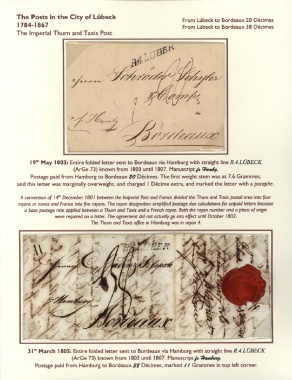 The Posts in the City of Lübeck
1784-1867
The Imperial Thurn and Taxis Post
From Lübeck to Bordeaux 20 Décimes
From Lübeck to Bordeaux 38 Décimes
R.4.LÜBEC
Schröder
Bordeaux
19th May 1803: Entire folded letter sent to Bordeaux via Hamburg with straight line R.4.LÜBECK
(ArGe 73) known from 1803 until 1807. Manuscript
Postage paid from Hamburg to Bordeaux 20 Décimes. The first weight step was at 7.6 Grammes,
and this letter was marginally overweight, and charged 1 Décime extra, and marked the letter with a paraphe.
A convention of 14th December 1801 between the Imperial Post and France divided the Thurn and Taxis postal area into four
rayons or zones and France into five rayons. The rayon designation simplified postage due calculations for unpaid letters because
a base postage rate applied between a Thurn and Taxis and a French rayon. Both the rayon number and a place of origin
were required on a letter. The agreement did not actually go into effect until October 1802.
The Thurn and Taxis office in Hamburg was in rayon 4.
Bordeaux
31st March 1805: Entire folded letter sent to Bordeaux via Hamburg with straight line R.4.LÜBECK
(ArGe 73) known from 1803 until 1807. Manuscript
Postage paid from Hamburg to Bordeaux 38 Décimes, marked 11 Grammes in top left corner.